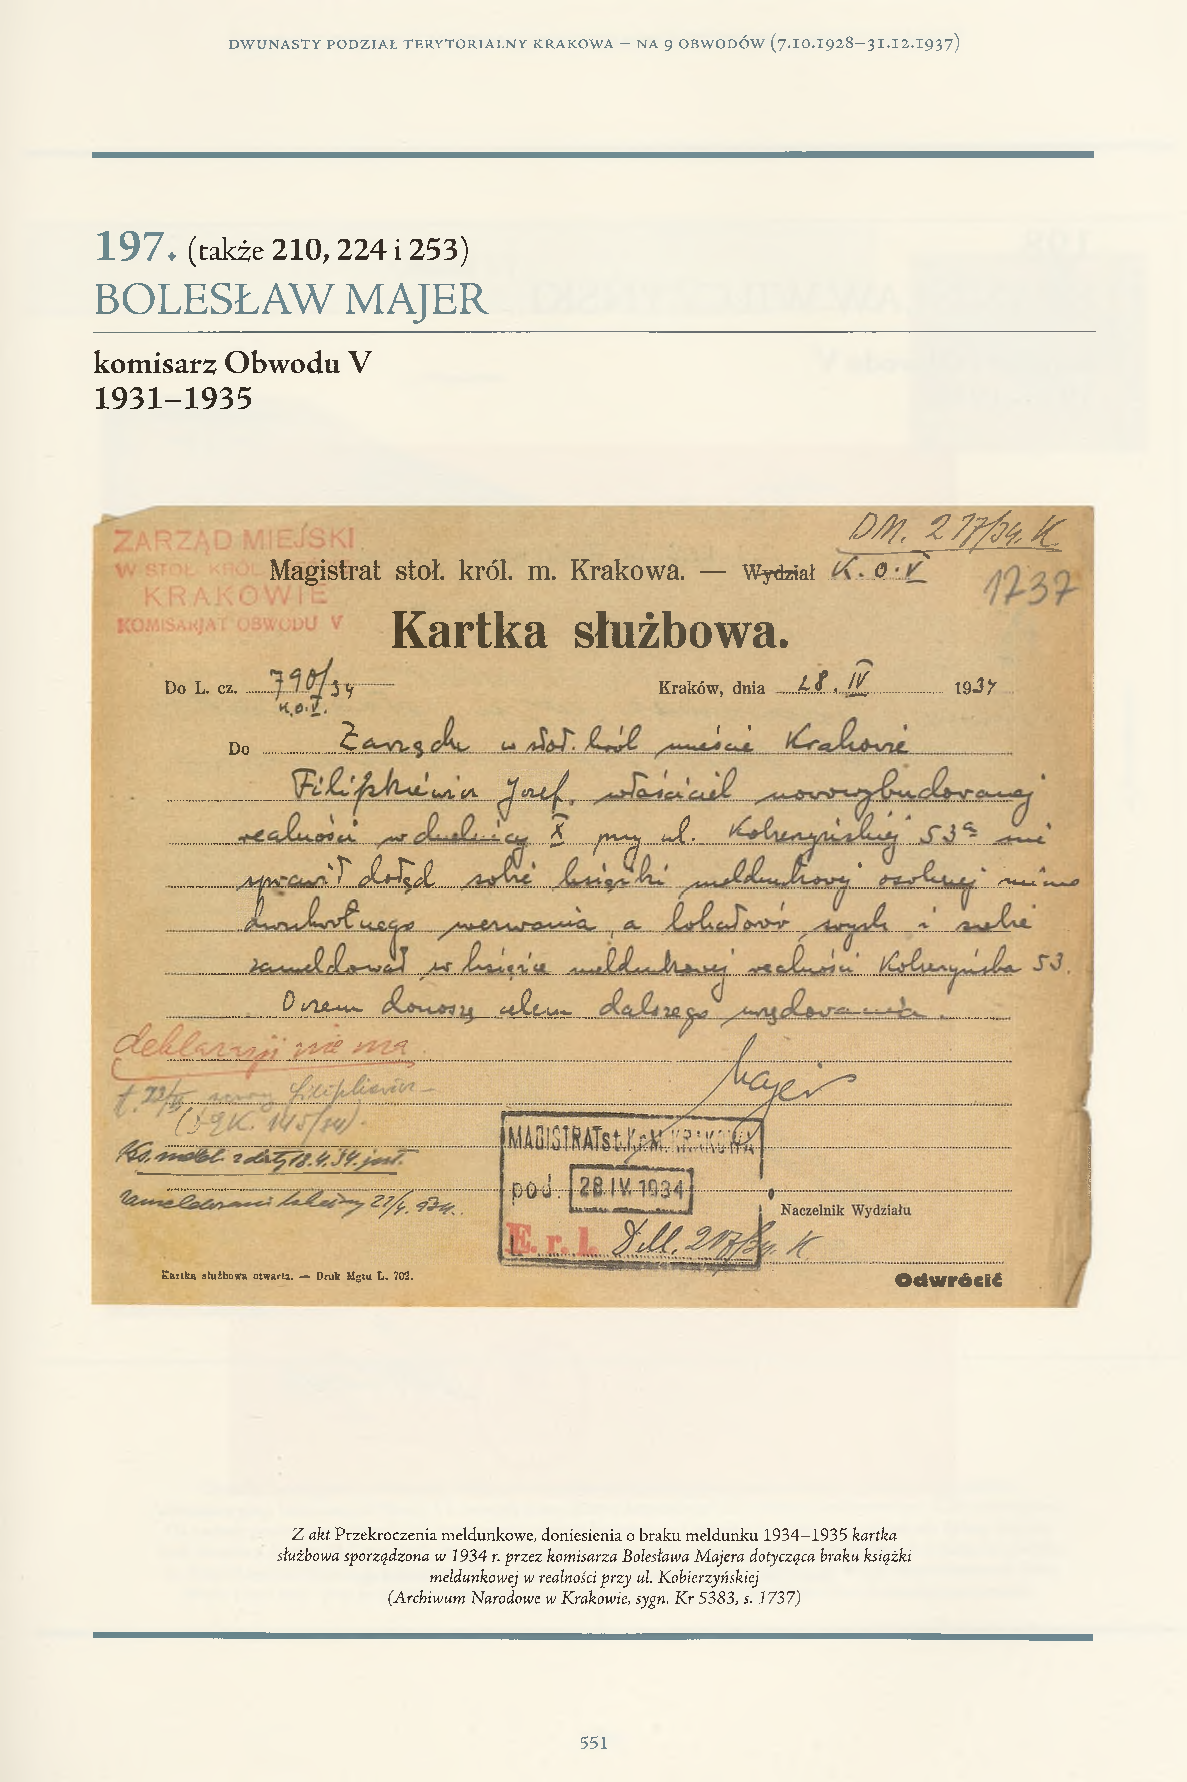 DWUNASTY PODZIAŁ TERYTORIALNY KRAKOWA – NA 9 OBWODÓW (7.10.1928–31.12.1937)
197. (także 210, 224 i 253)
BOLESŁAW MAJER
komisarz Obwodu V
1931–1935
ZARZĄD MIEJSKI
W STOŁ. KRÓL.
KRAKOWIE
KOMISARJAT OBWODU V
DM. 217/34. K
Magistrat stoł. król. m. Krakowa. — Wydział K. O. V
1737
Kartka służbowa.
Do L. cz. 790/34
K.O.V.
Kraków, dnia 28. IV 1934
Do Zarządu w stoł. król mieście Krakowie
Filipkiewicz Józef, właściciel nowowybudowanej
realności w dzielnicy X przy ul. Kobierzyńskiej 53a nie
sprawił dotąd sobie książki meldunkowej osobnej mimo
dwukrotnego wezwania, a lokatorów swych i siebie
zameldował w książce meldunkowej realności Kobierzyńska 53.
O czem donoszę celem dalszego urzędowania.
deklaracji nie ma.
Majer
MAGISTRAT st. Kr. M. KRAKOWA
pod. 28. IV. 1934
E. r. l. DM. 217/34. K
Ks. meld. z daty 18.4.34. jest.
Naczelnik Wydziału
Kartka służbowa otwarta. — Druk Mgtu L. 702.
Odwrócić
Z akt Przekroczenia meldunkowe, doniesienia o braku meldunku 1934–1935 kartka
służbowa sporządzona w 1934 r. przez komisarza Bolesława Majera dotycząca braku książki
meldunkowej w realności przy ul. Kobierzyńskiej
(Archiwum Narodowe w Krakowie, sygn. Kr 5383, s. 1737)
551